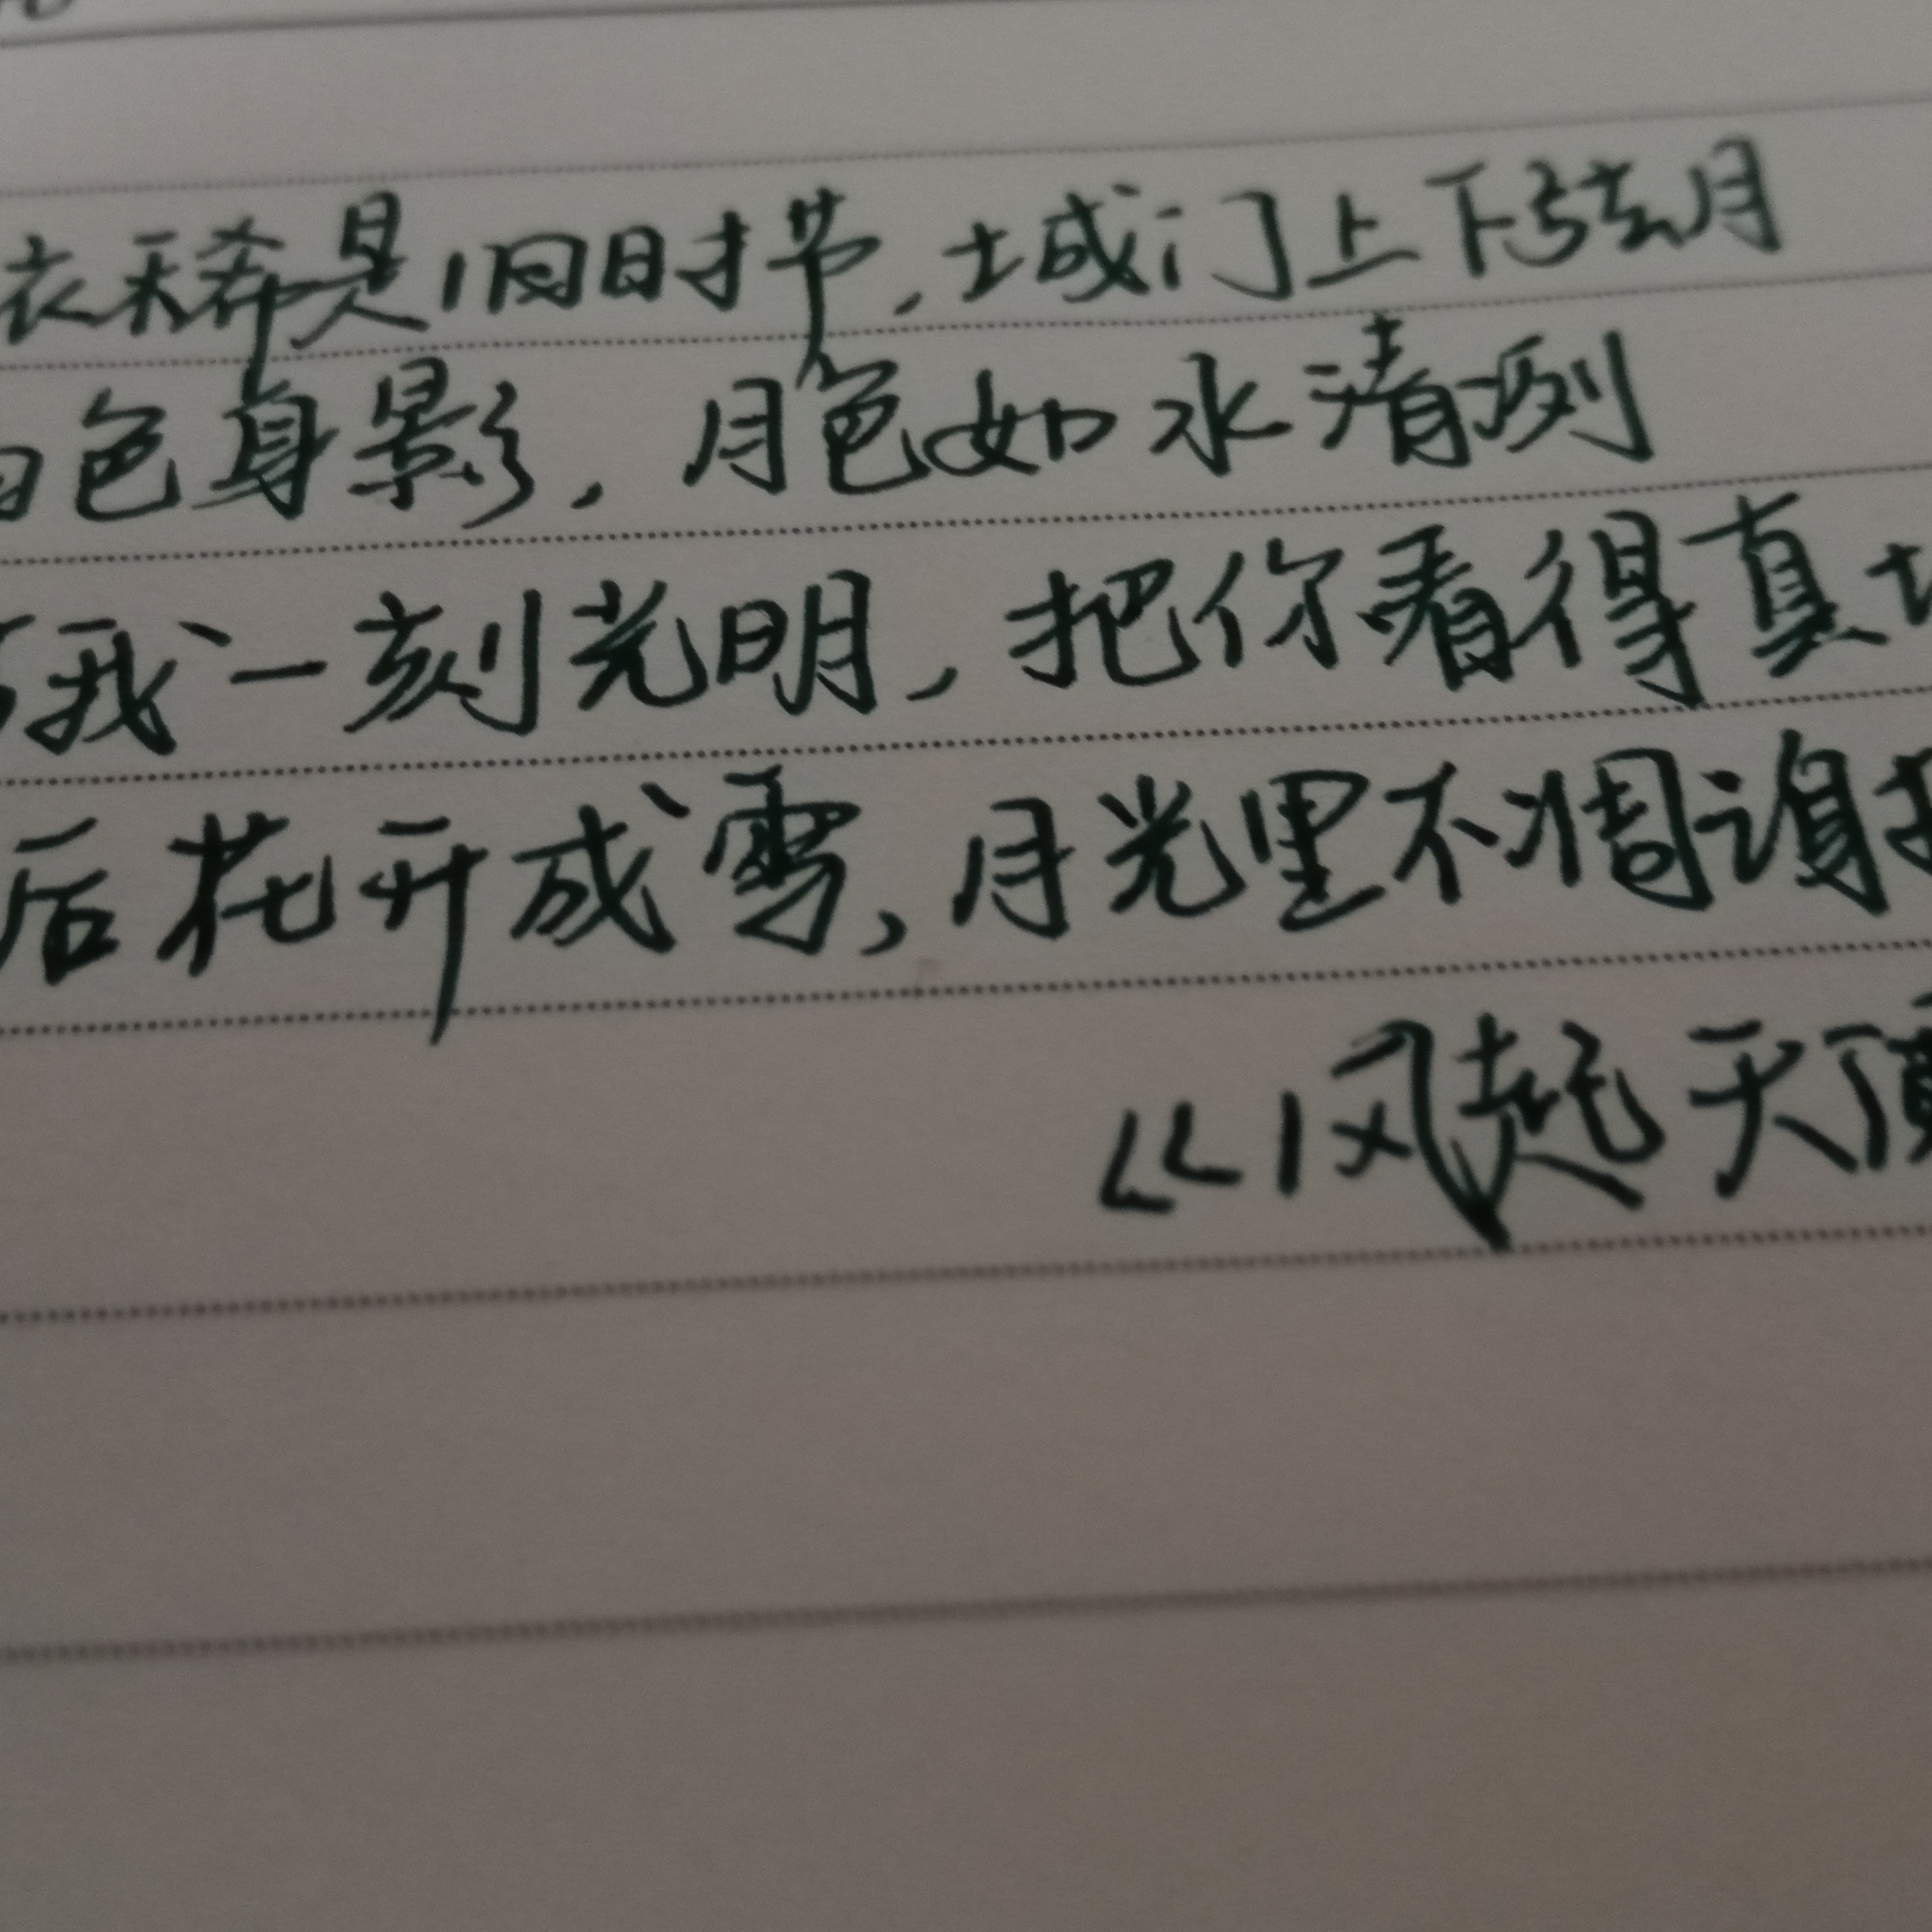 衣稀是旧日时节，城门上下弦月
白色身影，月色如水清冽
我一刻光明，把你看得真
后花开成雪，月光里不凋谢
《风起天